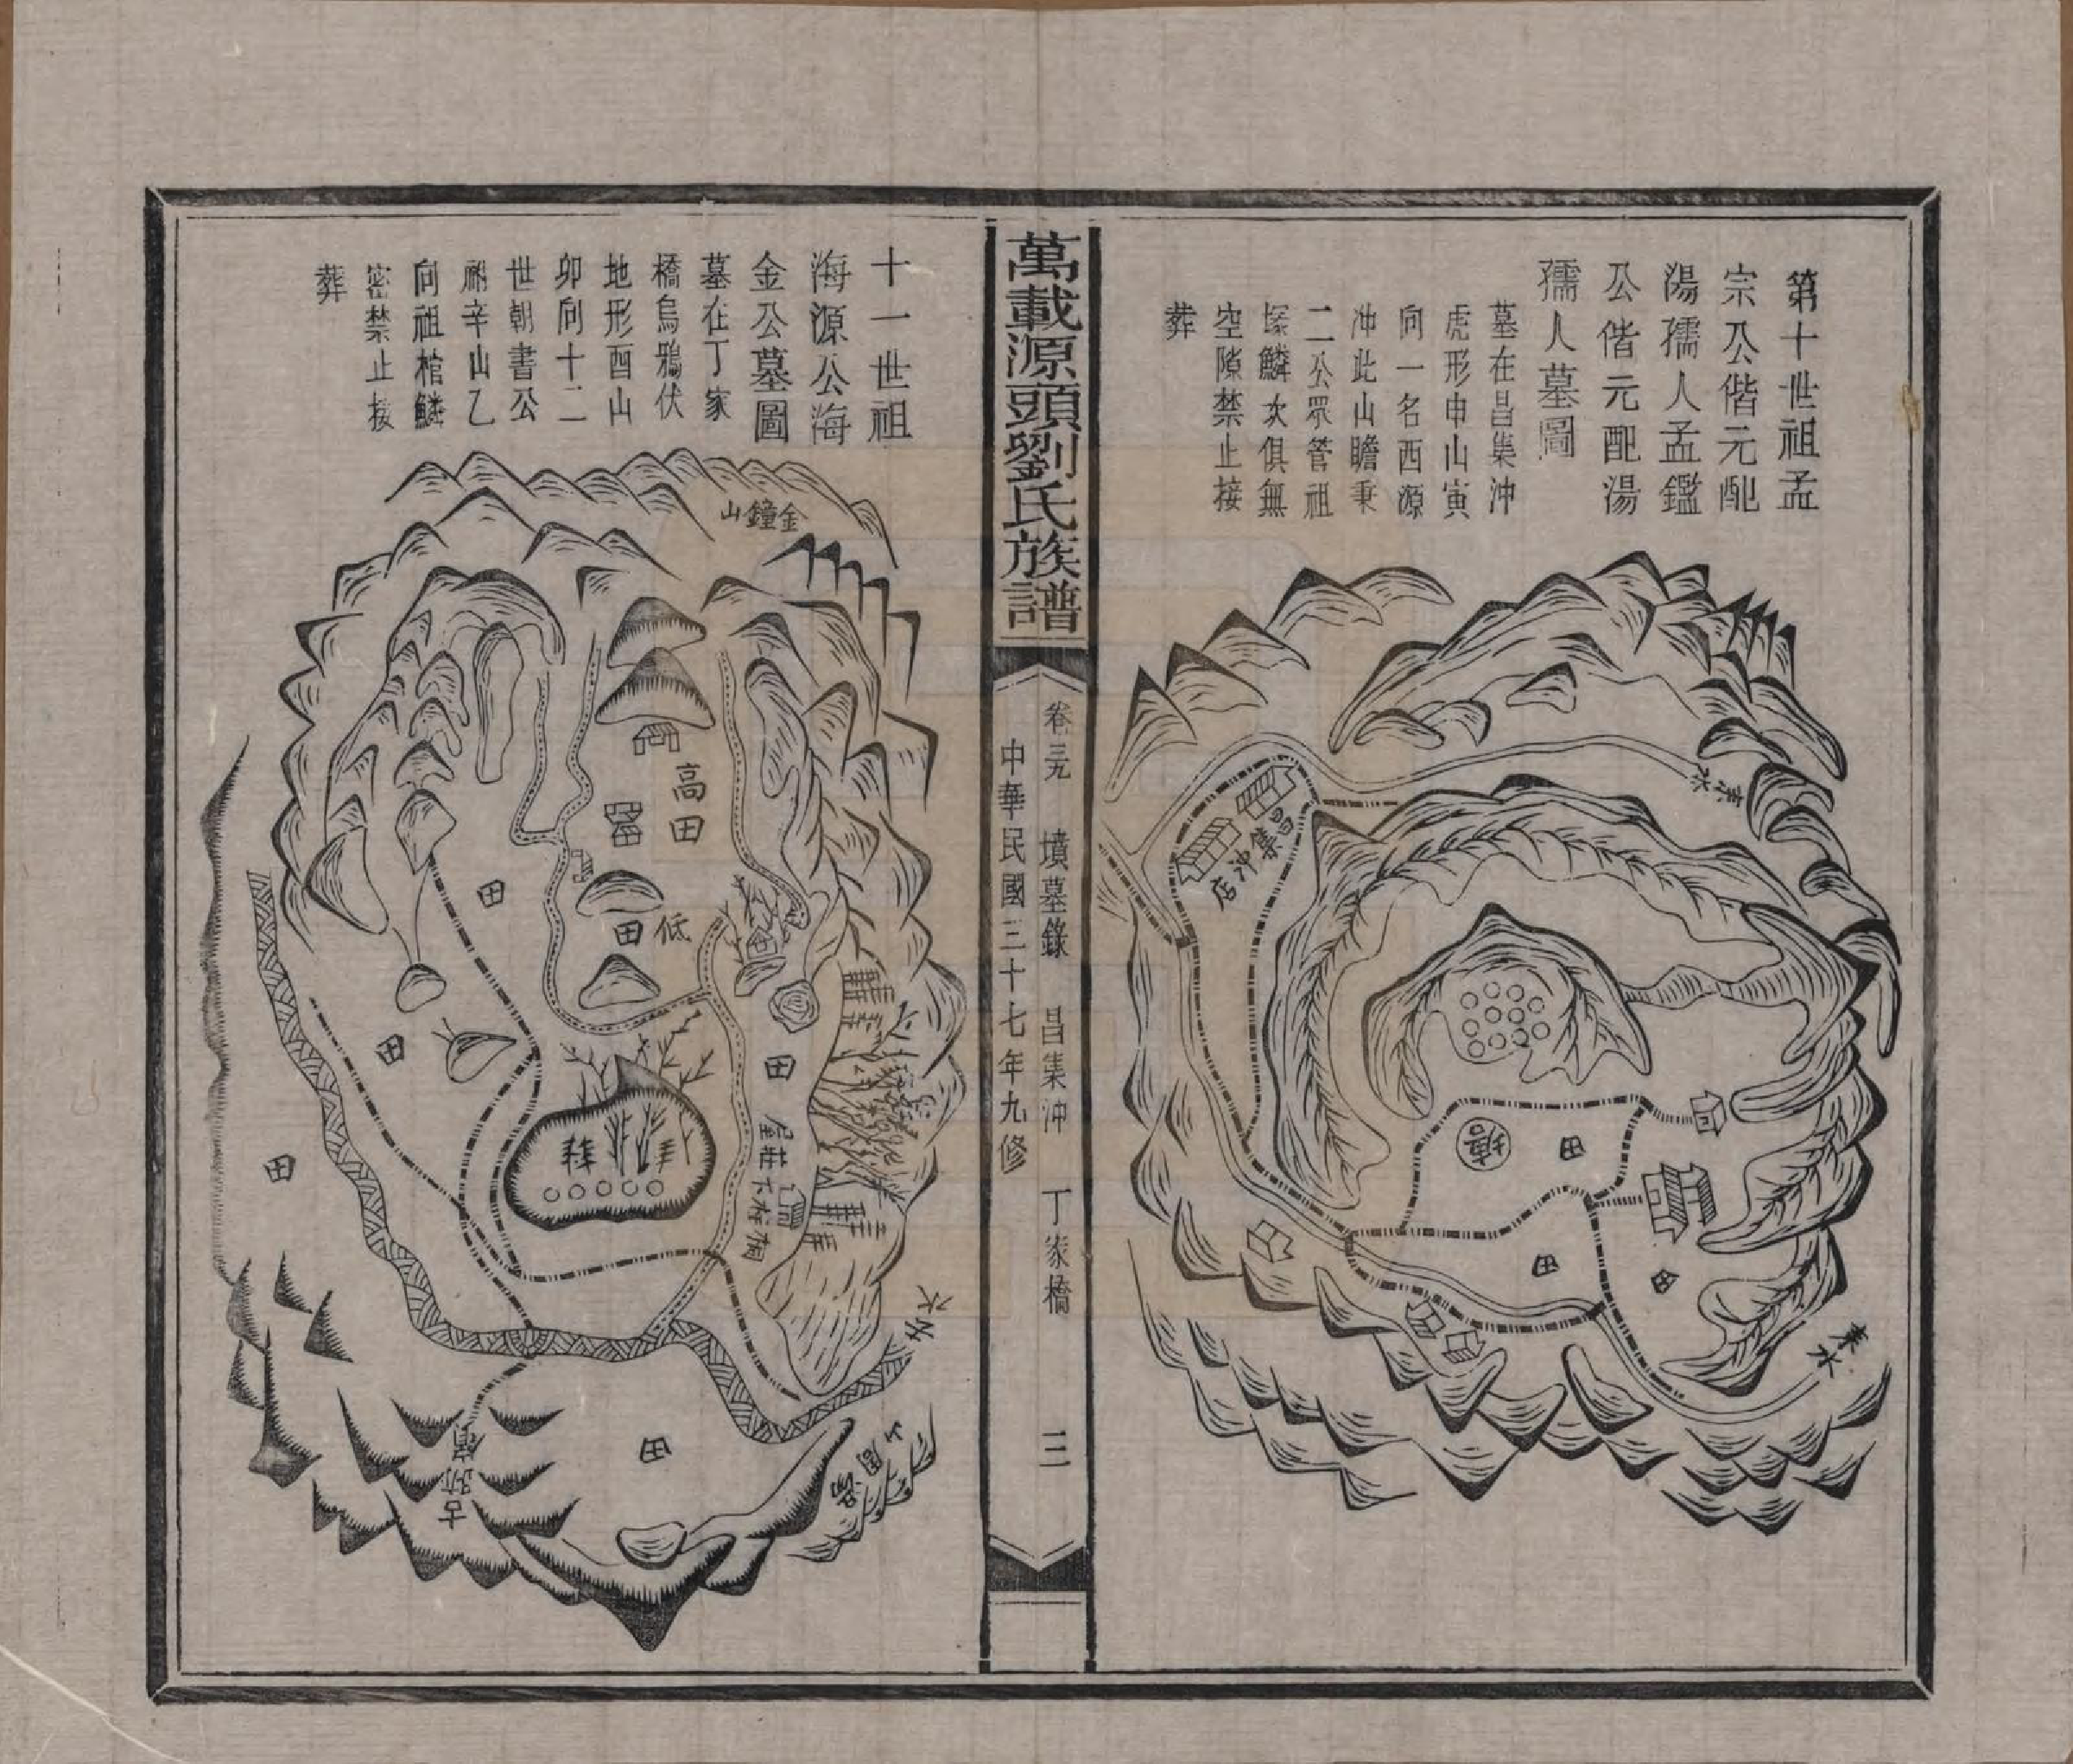 第十世祖孟
宗公偕元配
湯孺人孟鑑
公偕元配湯
孺人墓圖
墓在昌集沖
虎形申山寅
向一名西源
沖此山瞻秉
二公眾管祖
塚鱗次俱無
空隙禁止接
葬
來水
昌集沖店
塘
田
田
田
來水
萬載源頭劉氏族譜
卷三元 墳墓錄 昌集沖 丁家橋 三
中華民國三十七年九修
十一世祖
海源公海
金公墓圖
墓在丁家
橋烏鴉伏
地形酉山
卯向十二
世朝書公
祔辛山乙
向祖棺鱗
密禁止接
葬
金鐘山
高田
低田
田
田
田
田
田
屋莊下
水
山
古